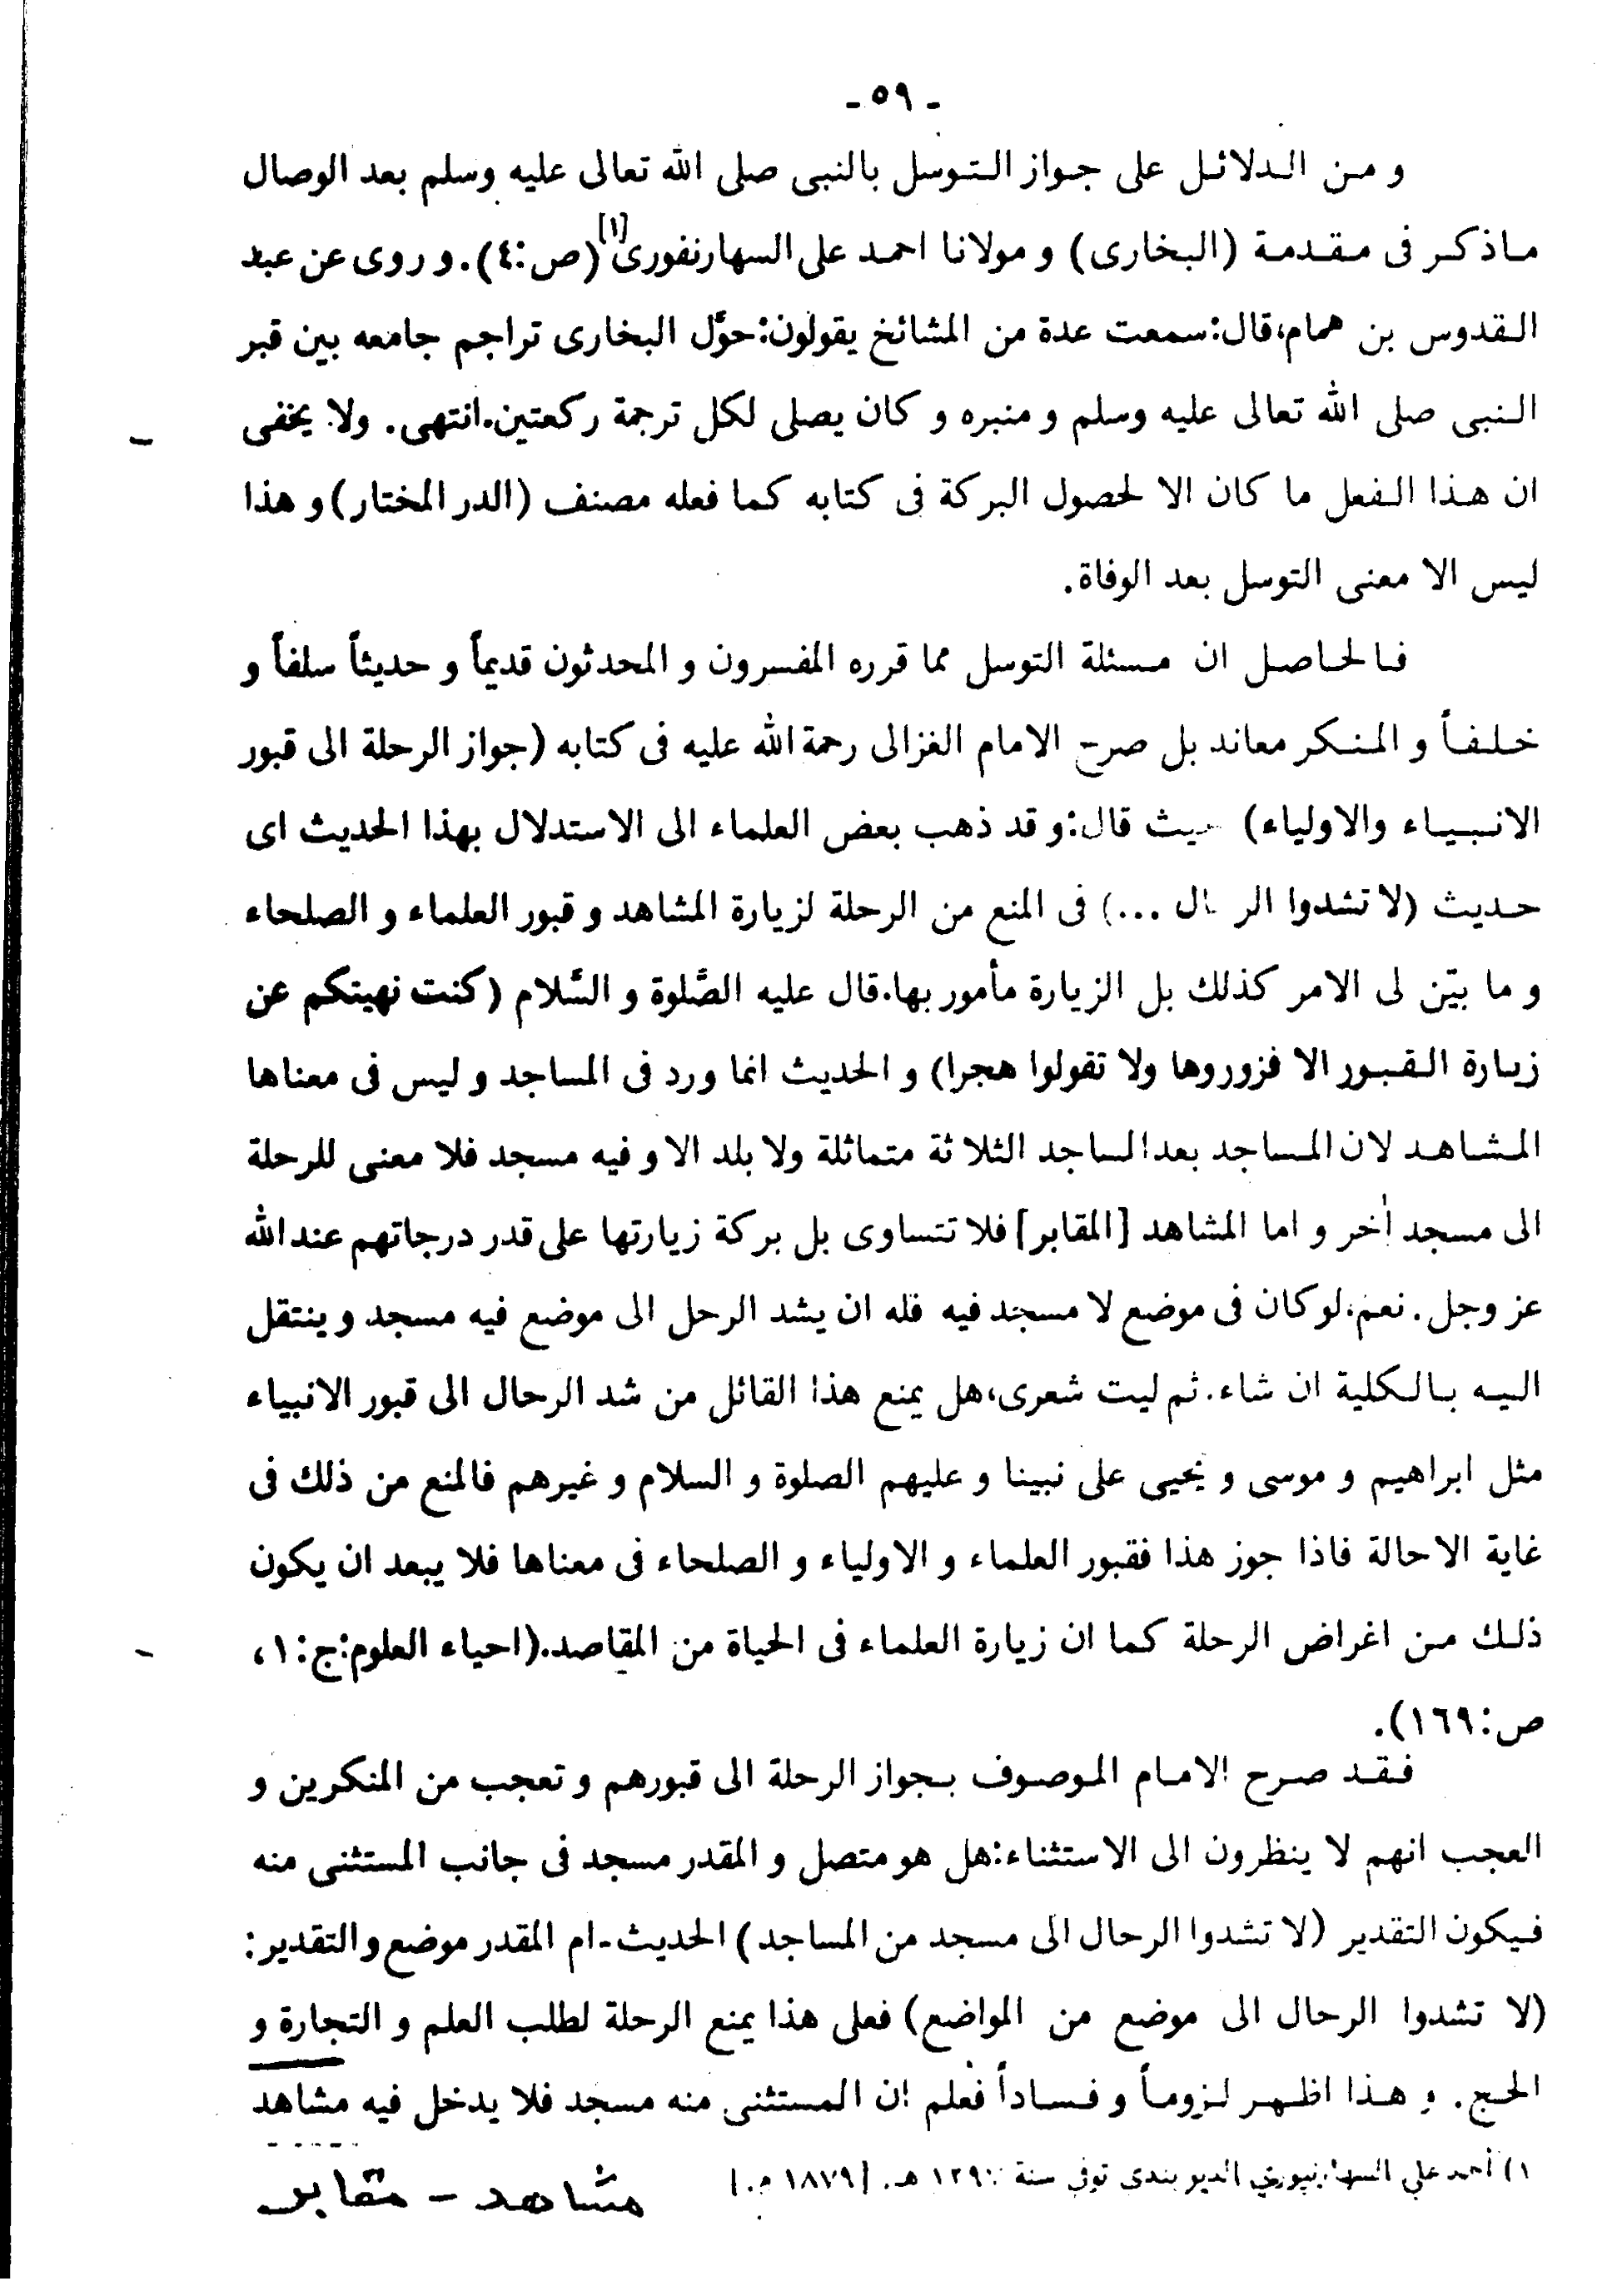 - ٥٩ -
و من الدلائل على جواز التوسل بالنبى صلى الله تعالى عليه وسلم بعد الوصال
ماذكر فى مقدمة (البخارى) و مولانا احمد على السهارنفورى[١] (ص:٤). و روى عن عبد
القدوس بن همام،قال:سمعت عدة من المشائخ يقولون:حوّل البخارى تراجم جامعه بين قبر
النبى صلى الله تعالى عليه وسلم و منبره و كان يصلى لكل ترجمة ركعتين.انتهى. ولا يخفى
ان هذا الفعل ما كان الا لحصول البركة فى كتابه كما فعله مصنف (الدر المختار) و هذا
ليس الا معنى التوسل بعد الوفاة.
فالحاصل ان مسئلة التوسل مما قرره المفسرون و المحدثون قديماً و حديثاً سلفاً و
خلفاً و المنكر معاند بل صرح الامام الغزالى رحمة الله عليه فى كتابه (جواز الرحلة الى قبور
الانبياء والاولياء) حيث قال:و قد ذهب بعض العلماء الى الاستدلال بهذا الحديث اى
حديث (لا تشدوا الرحال ...) فى المنع من الرحلة لزيارة المشاهد و قبور العلماء و الصلحاء
و ما بتيّن لى الامر كذلك بل الزيارة مأمور بها.قال عليه الصّلوة و السّلام (كنت نهيتكم عن
زيارة القبور الا فزوروها ولا تقولوا هجرا) و الحديث انما ورد فى المساجد و ليس فى معناها
المشاهد لان المساجد بعد المساجد الثلاثة متماثلة ولا بلد الا و فيه مسجد فلا معنى للرحلة
الى مسجد أخر و اما المشاهد [المقابر] فلا تتساوى بل بركة زيارتها على قدر درجاتهم عند الله
عز وجل. نعم،لو كان فى موضع لا مسجد فيه فله ان يشد الرحل الى موضع فيه مسجد و ينتقل
اليه بالكلية ان شاء. ثم ليت شعرى،هل يمنع هذا القائل من شد الرحال الى قبور الانبياء
مثل ابراهيم و موسى و يحيى على نبينا و عليهم الصلوة و السلام و غيرهم فالمنع من ذلك فى
غاية الاحالة فاذا جوز هذا فقبور العلماء و الاولياء و الصلحاء فى معناها فلا يبعد ان يكون
ذلك من اغراض الرحلة كما ان زيارة العلماء فى الحياة من المقاصد.(احياء العلوم:ج:١،
ص:١٦٩).
فقد صرح الامام الموصوف بجواز الرحلة الى قبورهم و تعجب من المنكرين و
العجب انهم لا ينظرون الى الاستثناء:هل هو متصل و المقدر مسجد فى جانب المستثنى منه
فيكون التقدير (لا تشدوا الرحال الى مسجد من المساجد) الحديث-ام المقدر موضع والتقدير:
(لا تشدوا الرحال الى موضع من المواضع) فعلى هذا يمنع الرحلة لطلب العلم و التجارة و
الحج. و هذا اظهر لزوماً و فساداً فعلم ان المستثنى منه مسجد فلا يدخل فيه مشاهد
١) أحمد علي السهارنپوري الديوبندى توفي سنة ١٢٩٧ هـ. [١٨٧٩ م.]
مشاهد - مقابر